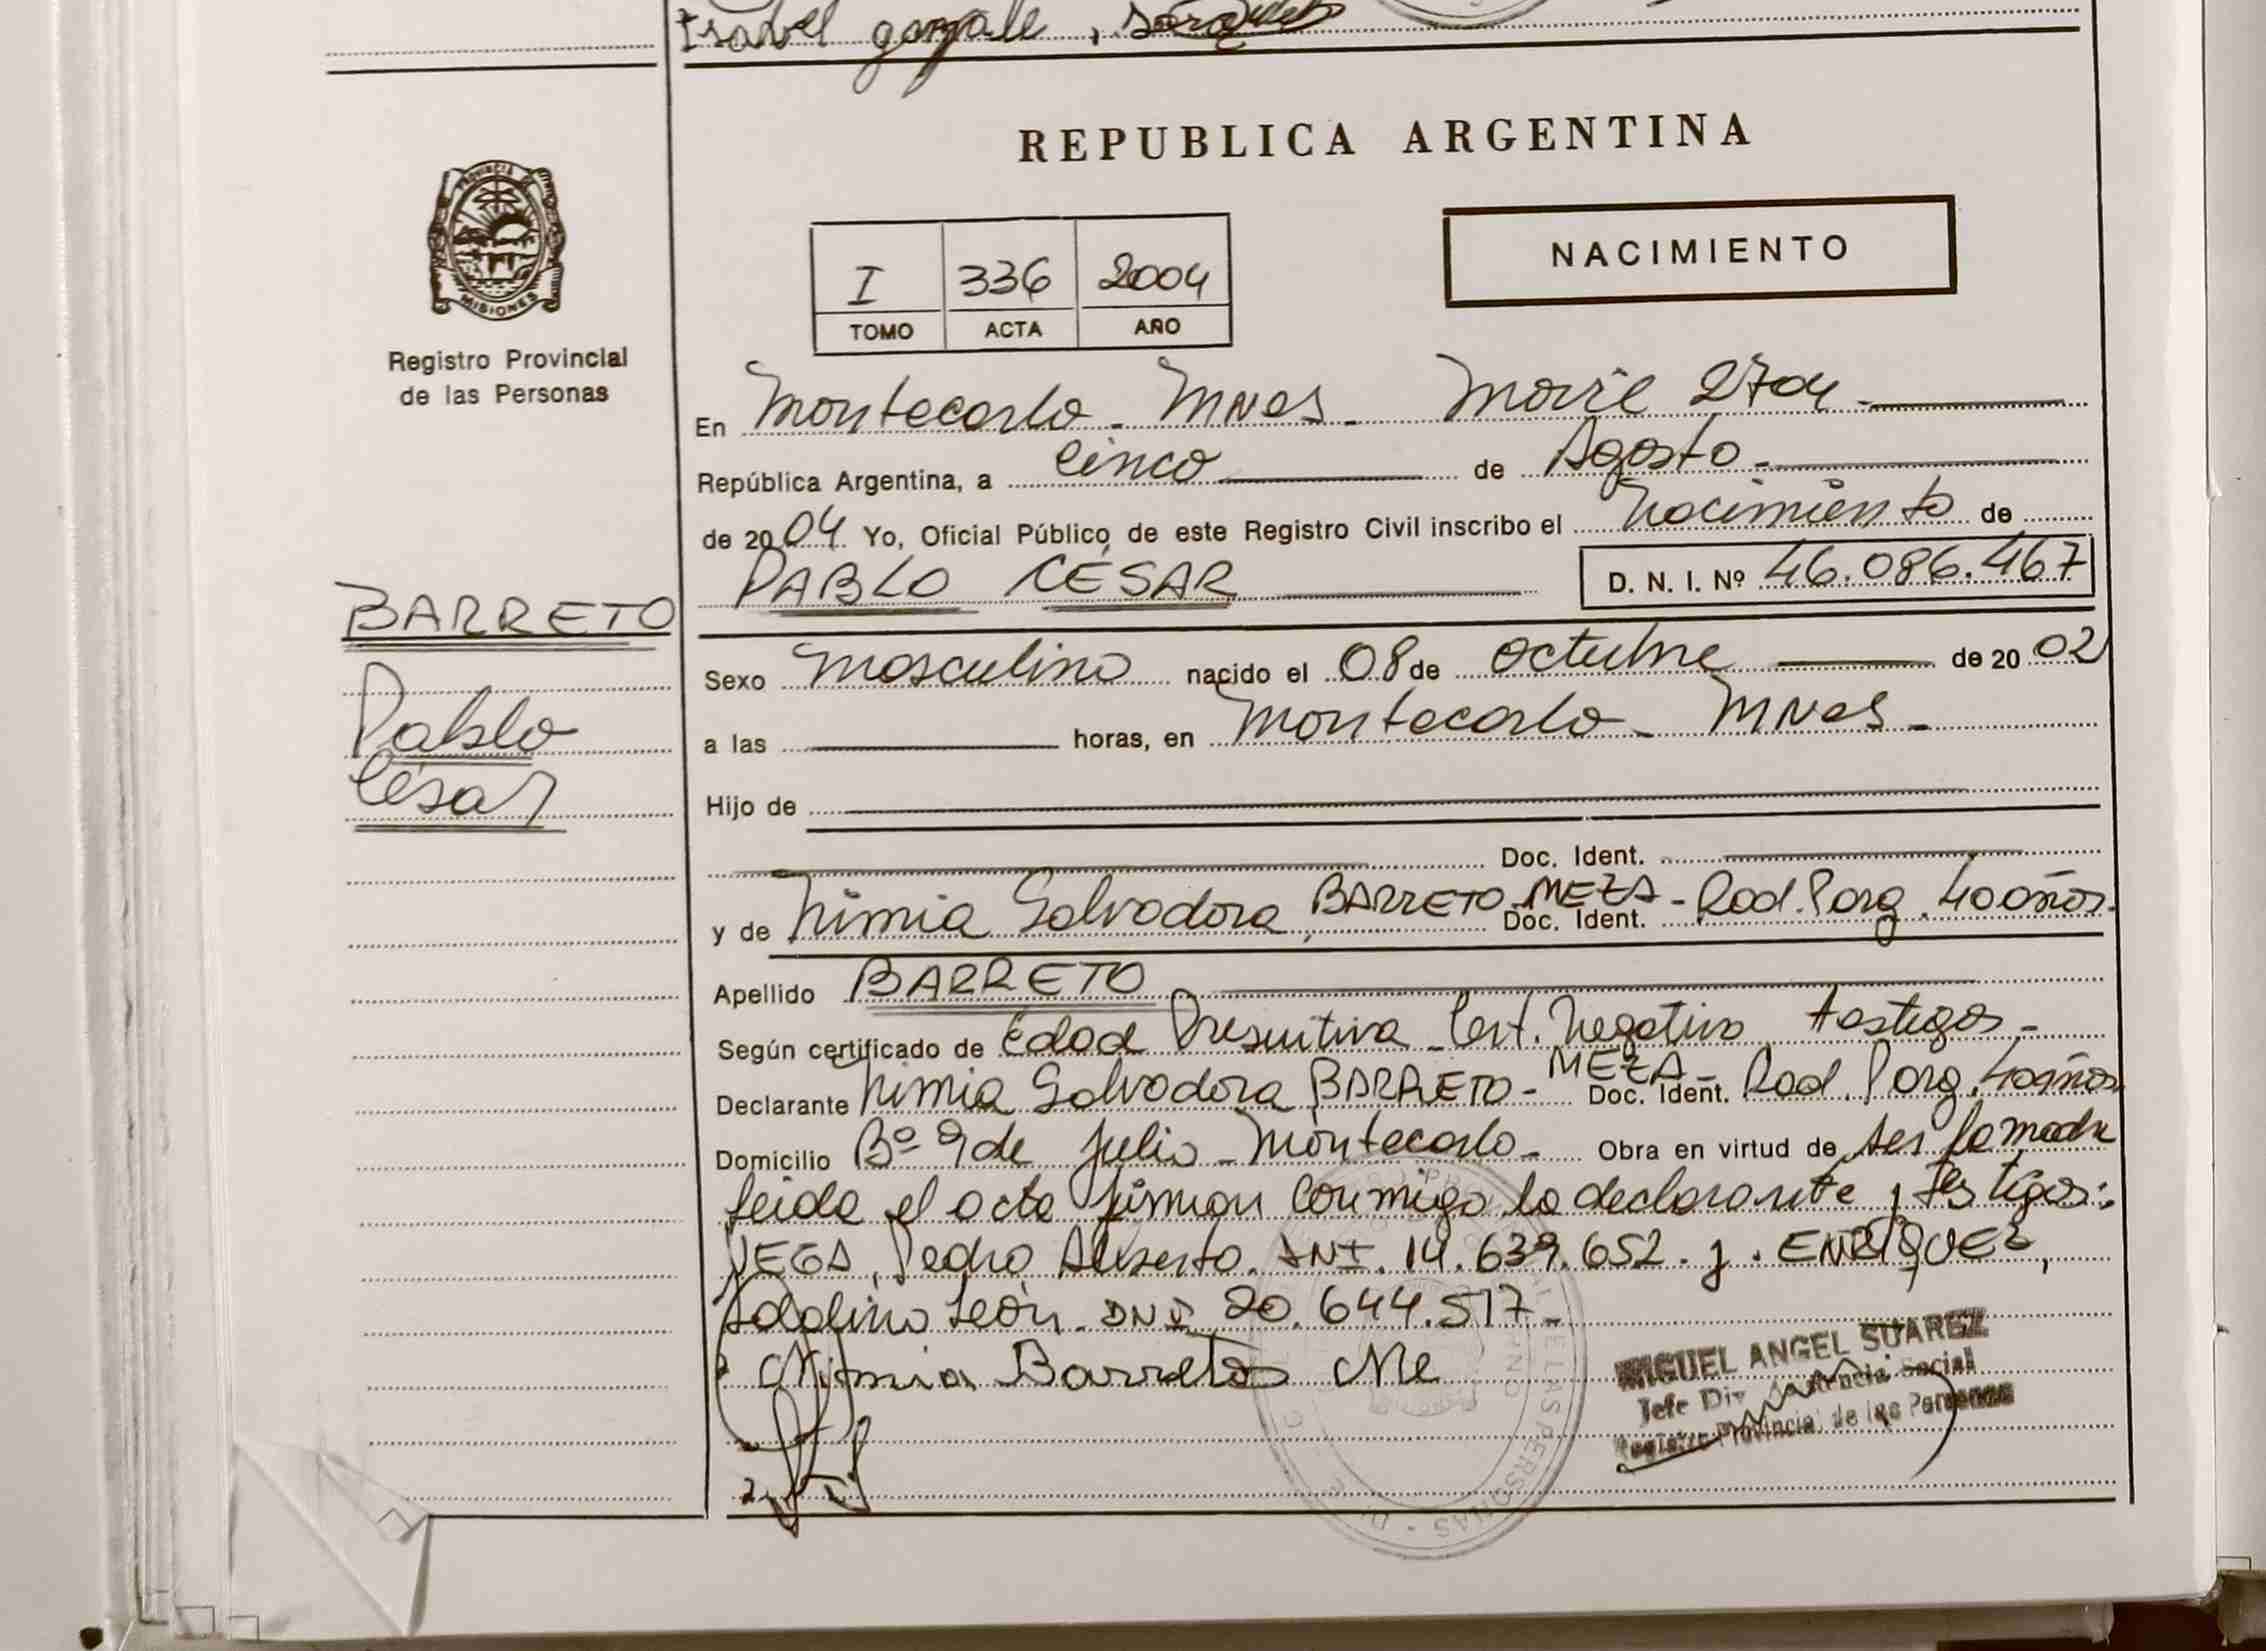 Isabel
REPUBLICA ARGENTINA
PROVINCIA DE
MISIONES
Registro Provincial
de las Personas
I 336 2004
TOMO ACTA AÑO
NACIMIENTO
En Montecarlo - MNES - Movil 2704 -
República Argentina, a Cinco de Agosto -
de 2004 Yo, Oficial Público de este Registro Civil inscribo el Nacimiento de
PABLO CÉSAR D. N. I. Nº 46.086.467
BARRETO
Pablo
César
Sexo Masculino nacido el 08 de Octubre de 2002
a las horas, en Montecarlo - MNES -
Hijo de
Doc. Ident.
y de Nimia Salvadora, BARRETO MEZA - Doc. Ident. Rad. Parag. 40 años -
Apellido BARRETO
Según certificado de Edad Presuntiva - Cert. Negativo testigos -
Declarante Nimia Salvadora BARRETO - MEZA - Doc. Ident. Rad. Parag. 40 años
Domicilio Bº 9 de Julio - Montecarlo - Obra en virtud de ser la madre
leida el acta firman conmigo la declarante y testigos:
VEGA, Pedro Alberto. DNI. 14.639.652. y. ENRIQUEZ,
León - DNI 20.644.517 -
Nimia Barreto Me
MIGUEL ANGEL SUAREZ
Jefe Div Social
Registro Provincial de las Personas